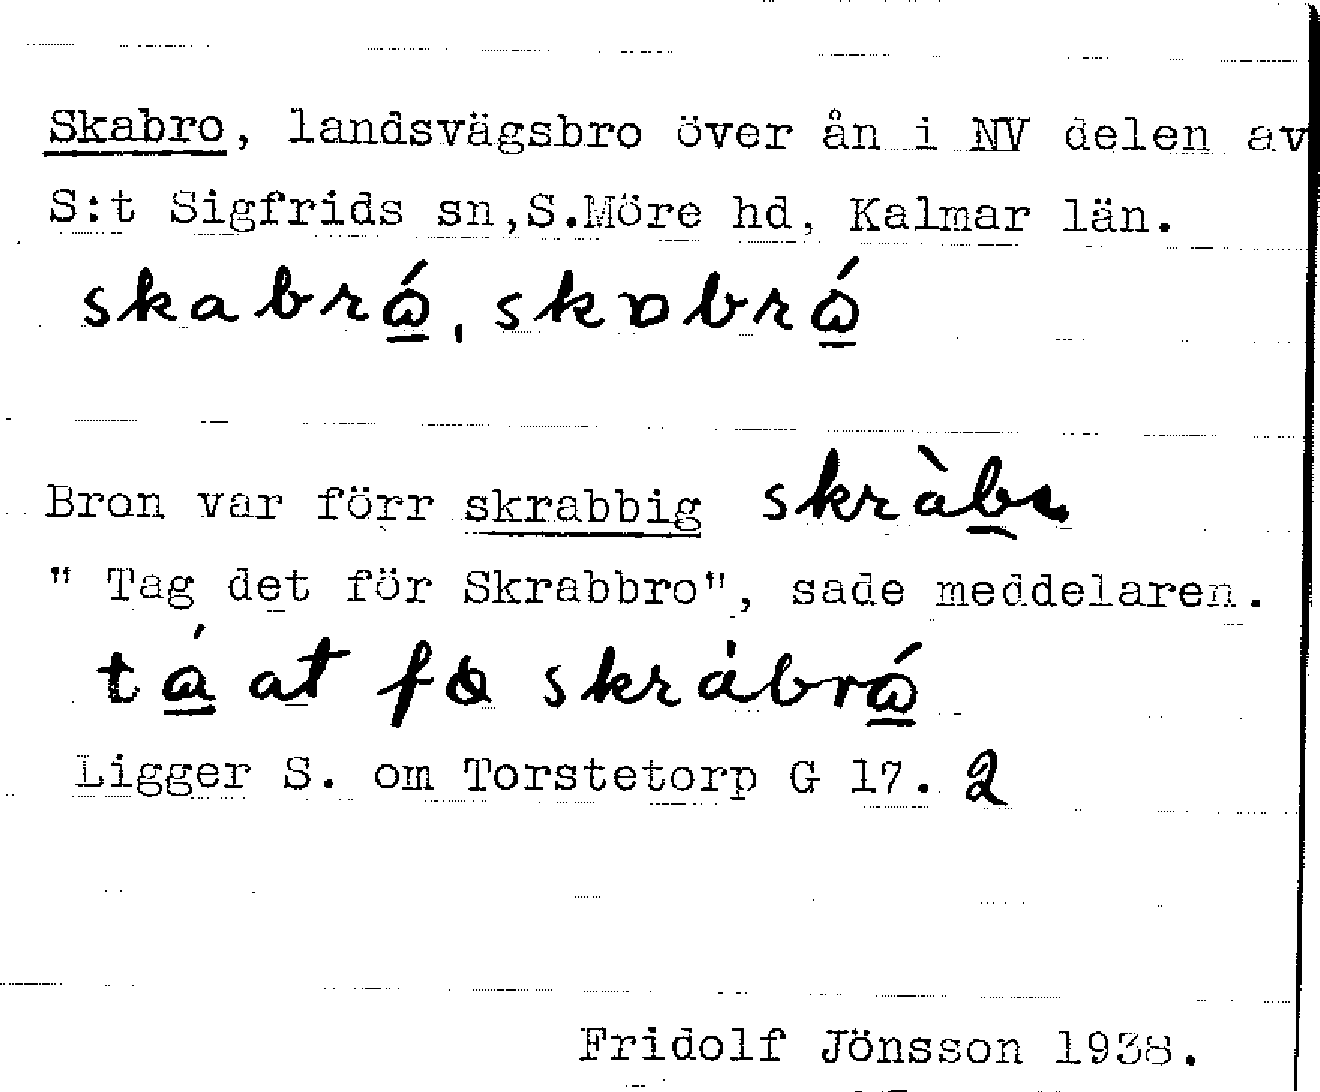 Skabro, landsvägsbro över ån i NV delen av
S:t Sigfrids sn,S.Möre hd, Kalmar län.
skabró, skɒbró
Bron var förr skrabbig skràbı
" Tag det för Skrabbro", sade meddelaren.
tá at fɵ skràbró
Ligger S. om Torstetorp G 17. 2
Fridolf Jönsson 1938.